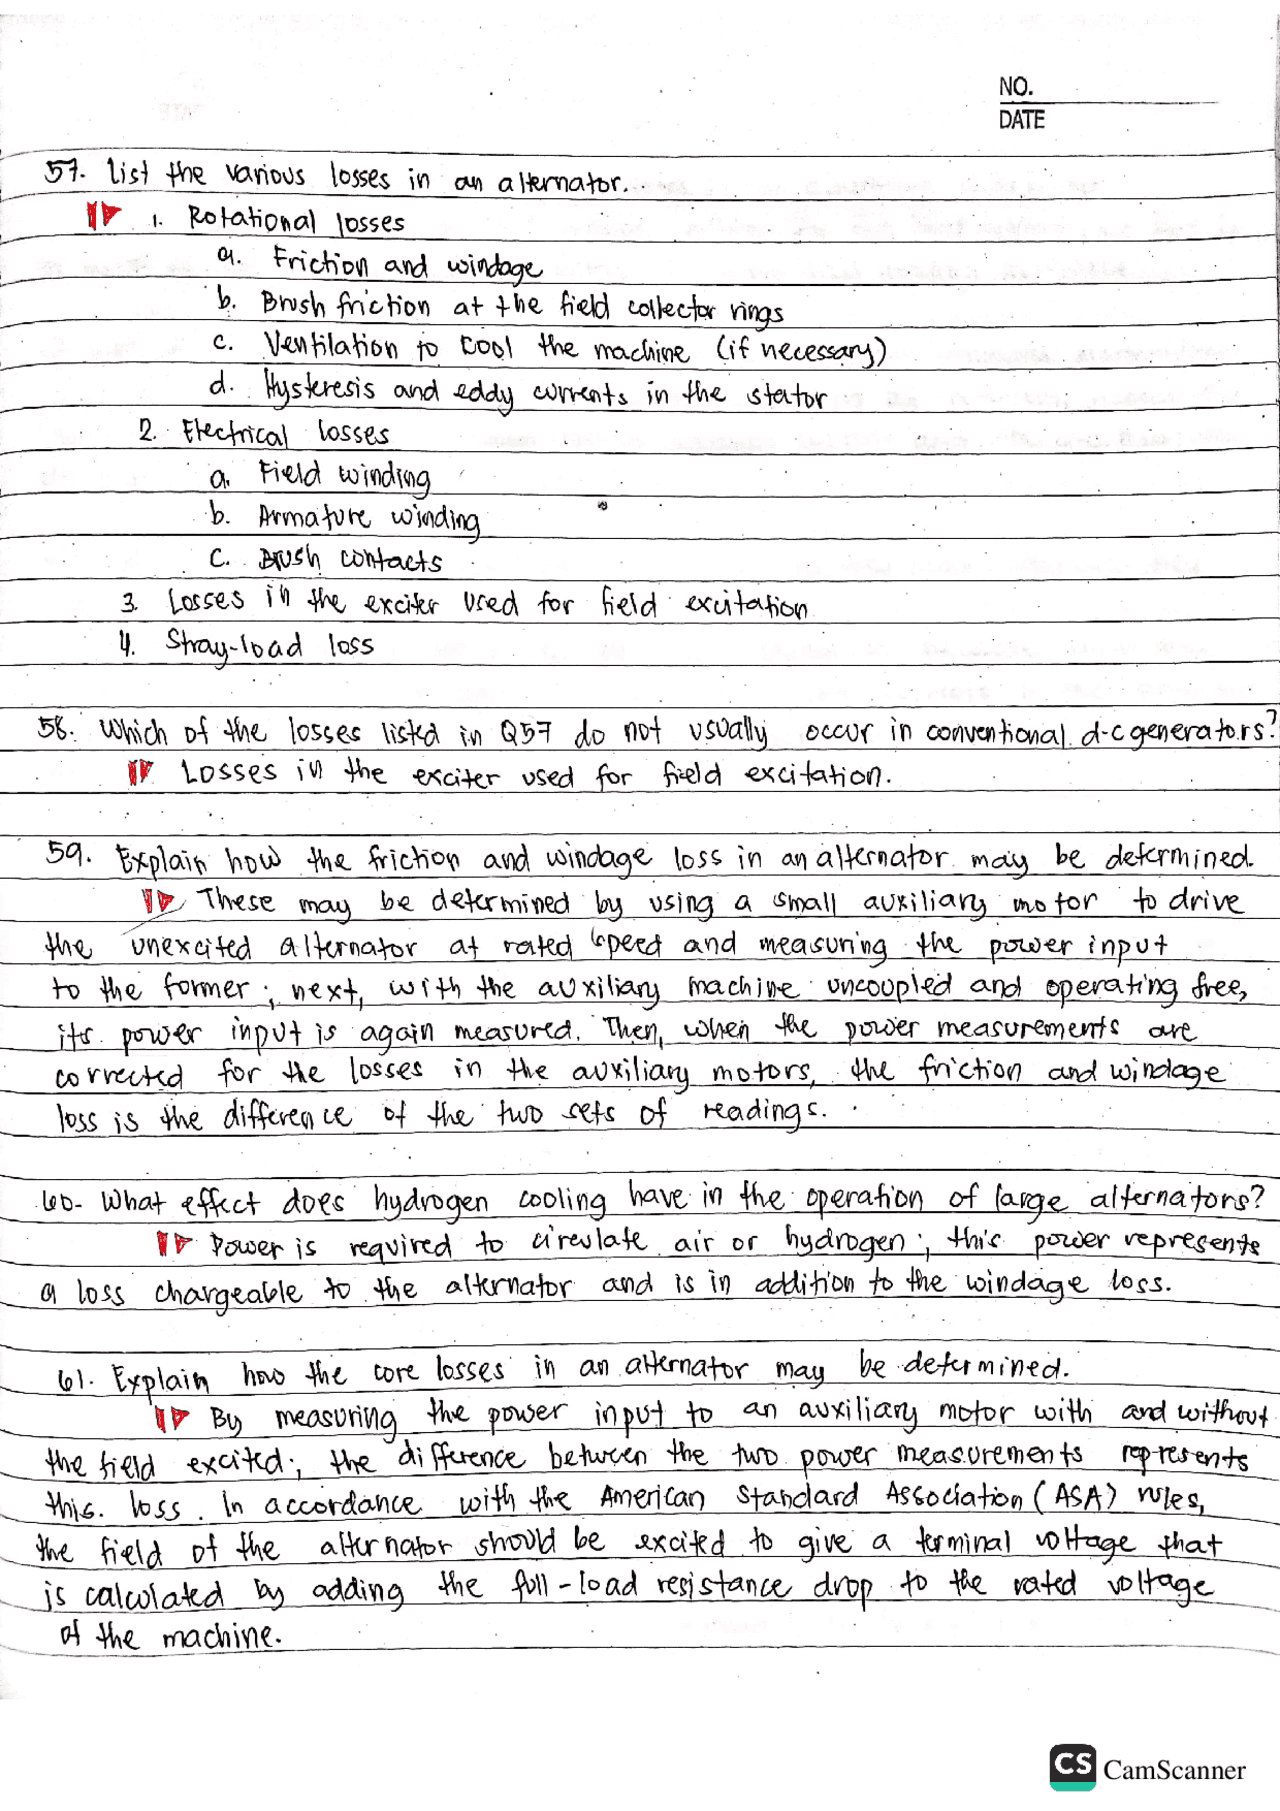 NO.
DATE
57. List the various losses in an alternator.
1. Rotational losses
a. Friction and windage
b. Brush friction at the field collector rings
c. Ventilation to cool the machine (if necessary)
d. Hysteresis and eddy currents in the stator
2. Electrical losses
a. Field winding
b. Armature winding
c. Brush contacts
3. Losses in the exciter used for field excitation
4. Stray-load loss
58. Which of the losses listed in Q57 do not usually occur in conventional d-c generators?
Losses in the exciter used for field excitation.
59. Explain how the friction and windage loss in an alternator may be determined.
These may be determined by using a small auxiliary motor to drive
the unexcited alternator at rated speed and measuring the power input
to the former; next, with the auxiliary machine uncoupled and operating free,
its power input is again measured. Then, when the power measurements are
corrected for the losses in the auxiliary motors, the friction and windage
loss is the difference of the two sets of readings.
60. What effect does hydrogen cooling have in the operation of large alternators?
Power is required to circulate air or hydrogen; this power represents
a loss chargeable to the alternator and is in addition to the windage loss.
61. Explain how the core losses in an alternator may be determined.
By measuring the power input to an auxiliary motor with and without
the field excited; the difference between the two power measurements represents
this loss. In accordance with the American Standard Association (ASA) rules,
the field of the alternator should be excited to give a terminal voltage that
is calculated by adding the full-load resistance drop to the rated voltage
of the machine.
CS CamScanner